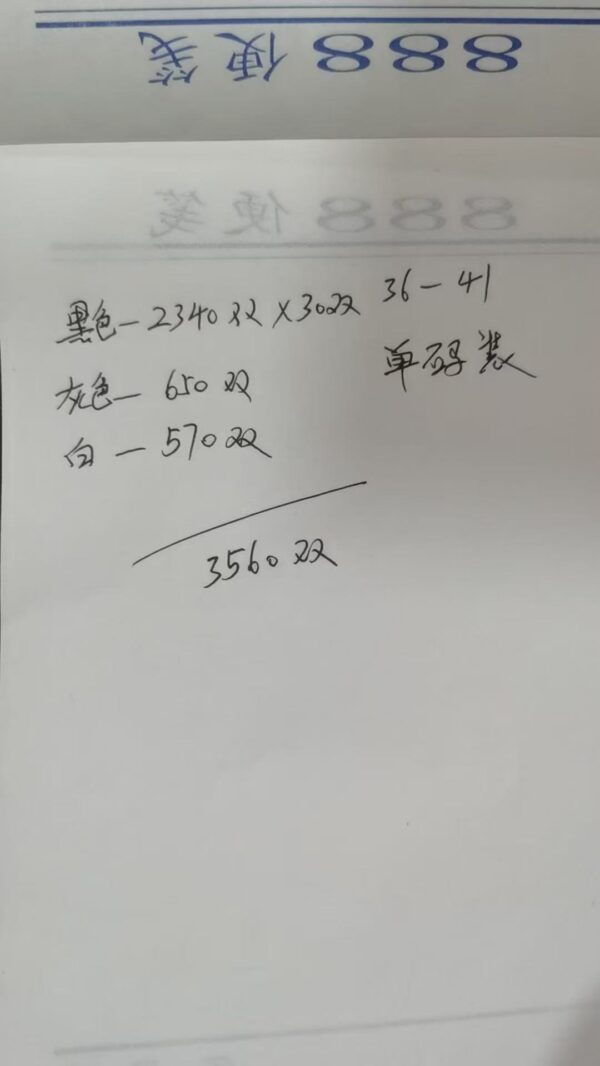 888便笺
888便笺
黑色—2340双×30双 36—41
单码装
灰色—650双
白—570双
3560双